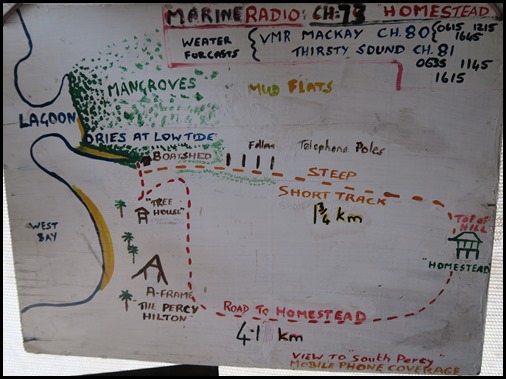 MARINE RADIO: CH: 73 "HOMESTEAD"
WEATER FORCASTS
VMR MACKAY CH.80 0615 1215 1645
THIRSTY SOUND CH. 81
0635 1145
1615
MANGROVES
MUD FLATS
LAGOON
DRIES AT LOW TIDE
BOATSHED
Fallen Telephone Poles
STEEP
SHORT TRACK
1¾ km
"TREE HOUSE"
WEST BAY
TOP OF HILL
"HOMESTEAD"
A-FRAME
"THE PERCY HILTON"
ROAD TO HOMESTEAD
4.1 km
VIEW TO "South Percy"
MOBILE PHONE COVERAGE